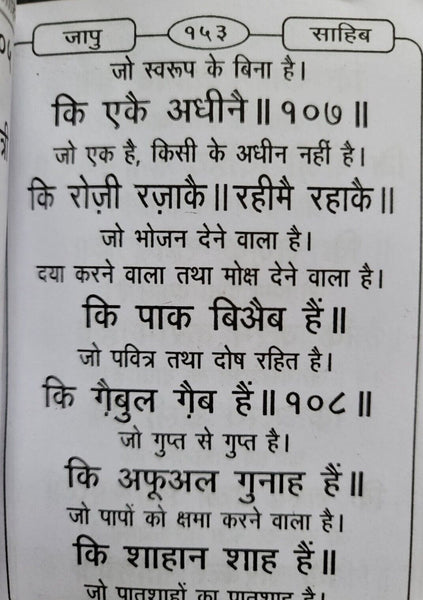 जापु १५३ साहिब
जो स्वरूप के बिना है।
कि एकै अधीनै॥१०७॥
जो एक है, किसी के अधीन नहीं है।
कि रोज़ी रज़ाकै॥रहीमै रहाकै॥
जो भोजन देने वाला है।
दया करने वाला तथा मोक्ष देने वाला है।
कि पाक बिऐब हैं॥
जो पवित्र तथा दोष रहित है।
कि ग़ैबुल ग़ैब हैं॥१०८॥
जो गुप्त से गुप्त है।
कि अफूअल गुनाह हैं॥
जो पापों को क्षमा करने वाला है।
कि शाहान शाह हैं॥
जो पातशाहों का पातशाह है।